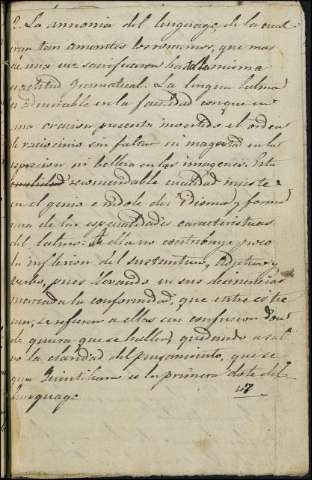 2. La armonia del lenguage, de la cual
eran tan amantes los romanos, que mas
de una vez sacrificaron hasta la misma
exactitud gramatical. La lengua latina
es admirable en la facilidad con que en
una oracion, presenta invertido el orden
de raciocinio sin faltar ni magestad en la
espresion ni belleza en las imagenes. Esta
recomendable cualidad nace
en el genio e indole del idioma, y forma
una de las especialidades caracteristicas
del latin: á ella no contribuye poco
la inflexion del sustantivo, adjetivo y
verbo, pues llevando en sus desinencias
marcada la conformidad, que entre si tie
nen, se refieren a ellas sin confusion don
de quiera que se hallen quedando a sal
vo la claridad del pensamiento, que se
gun Quintiliano es la primera dote del
lenguage
47